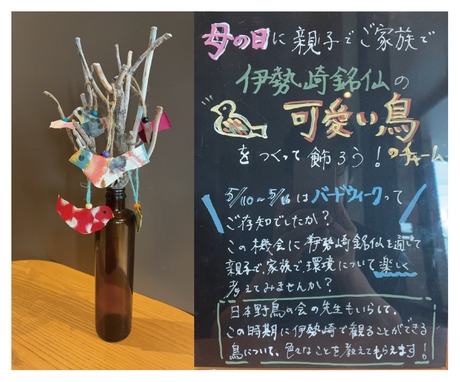 母の日に親子でご家族で
伊勢崎銘仙の
可愛い鳥
のチャーム
をつくって飾ろう!
5/10~5/16はバードウィークって
ご存知でしたか?
この機会に伊勢崎銘仙を通して
親子で、家族で、環境について楽しく
考えてみませんか?
日本野鳥の会の先生もいらして、
この時期に伊勢崎で観ることができる
鳥について、色々なことを教えてもらえます!